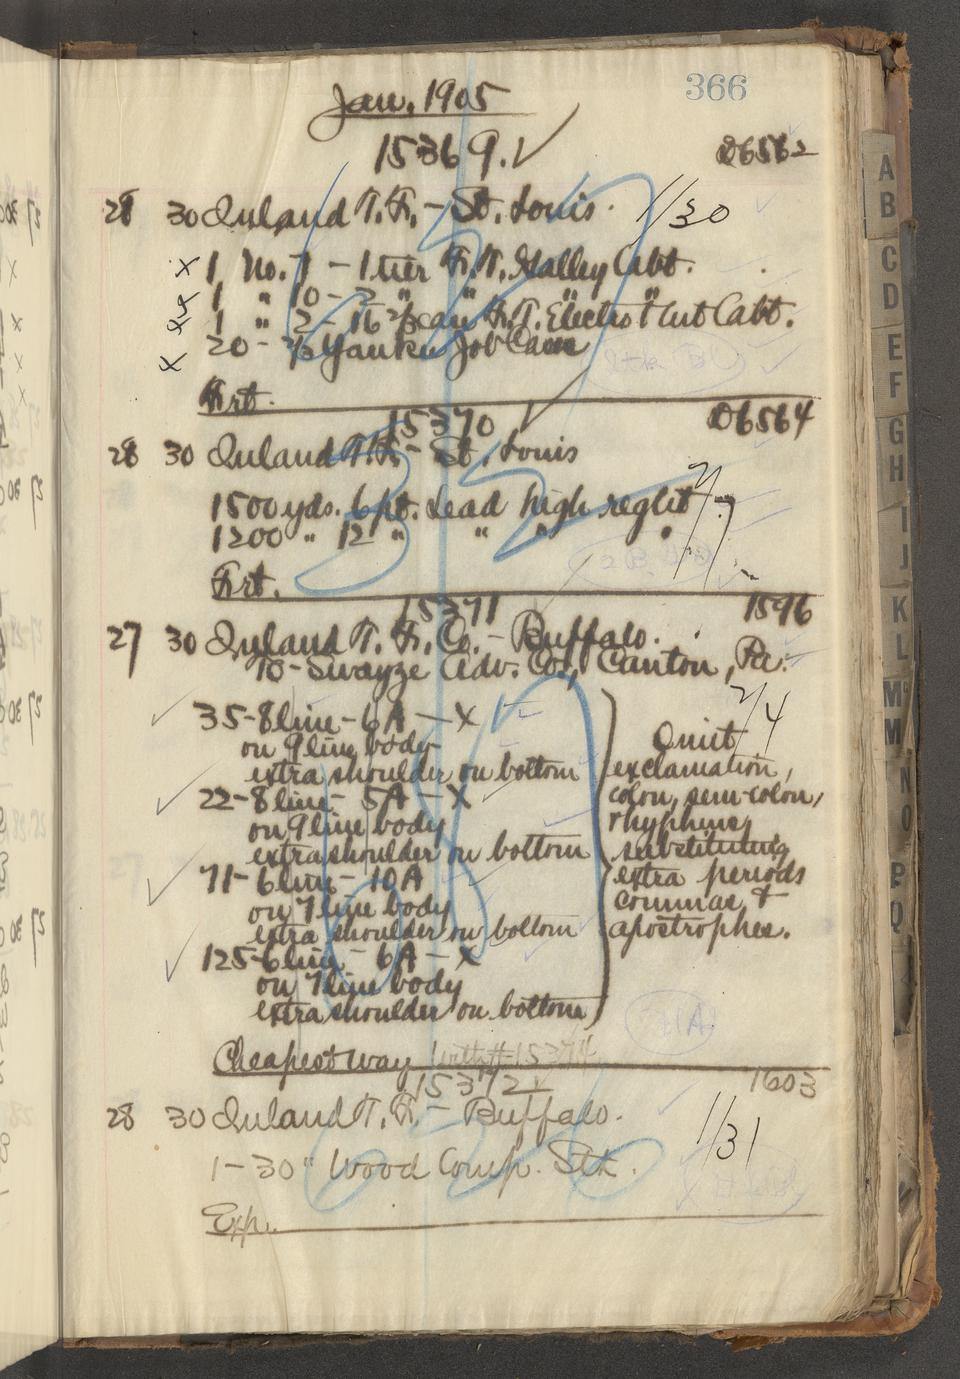 366
Jan. 1905
15369. ✓ D6562
28 30 Inland T. F. - St. Louis. 1/30
x 1 No. 7 - 1 tier F. T. Galley Cabt.
x 1 " 10 - 2 " " " "
x 1 " 2 - 16 2/3 case F. T. Electro & Cut Cabt.
x 20 - 2/3 Yankee Job Cases
Frt.
15370 ✓ D6564
28 30 Inland T. F. - St. Louis
1500 yds. 6 pt. Lead high reglet 2/7
1200 " 12 " " " "
Frt.
15371 1596
27 30 Inland T. F. Co. - Buffalo.
to - Swayze Adv. Co., Canton, Pa.
2/4
35 - 8 line - 6A - X
on 9 line body
extra shoulder on bottom
22 - 8 line - 5A - X
on 9 line body
extra shoulder on bottom
71 - 6 line - 10A
on 7 line body
extra shoulder on bottom
125 - 6 line - 6A - X
on 7 line body
extra shoulder on bottom
Omit
exclamation,
colon, semi-colon,
& hyphens,
substituting
extra periods
commas &
apostrophes.
Cheapest way with #15374
15372 1603
28 30 Inland T. F. - Buffalo.
1/31
1 - 30" Wood Comp. Stk.
Exp.
A
B
C
D
E
F
G
H
I
J
K
L
Mc
M
N
O
P
Q